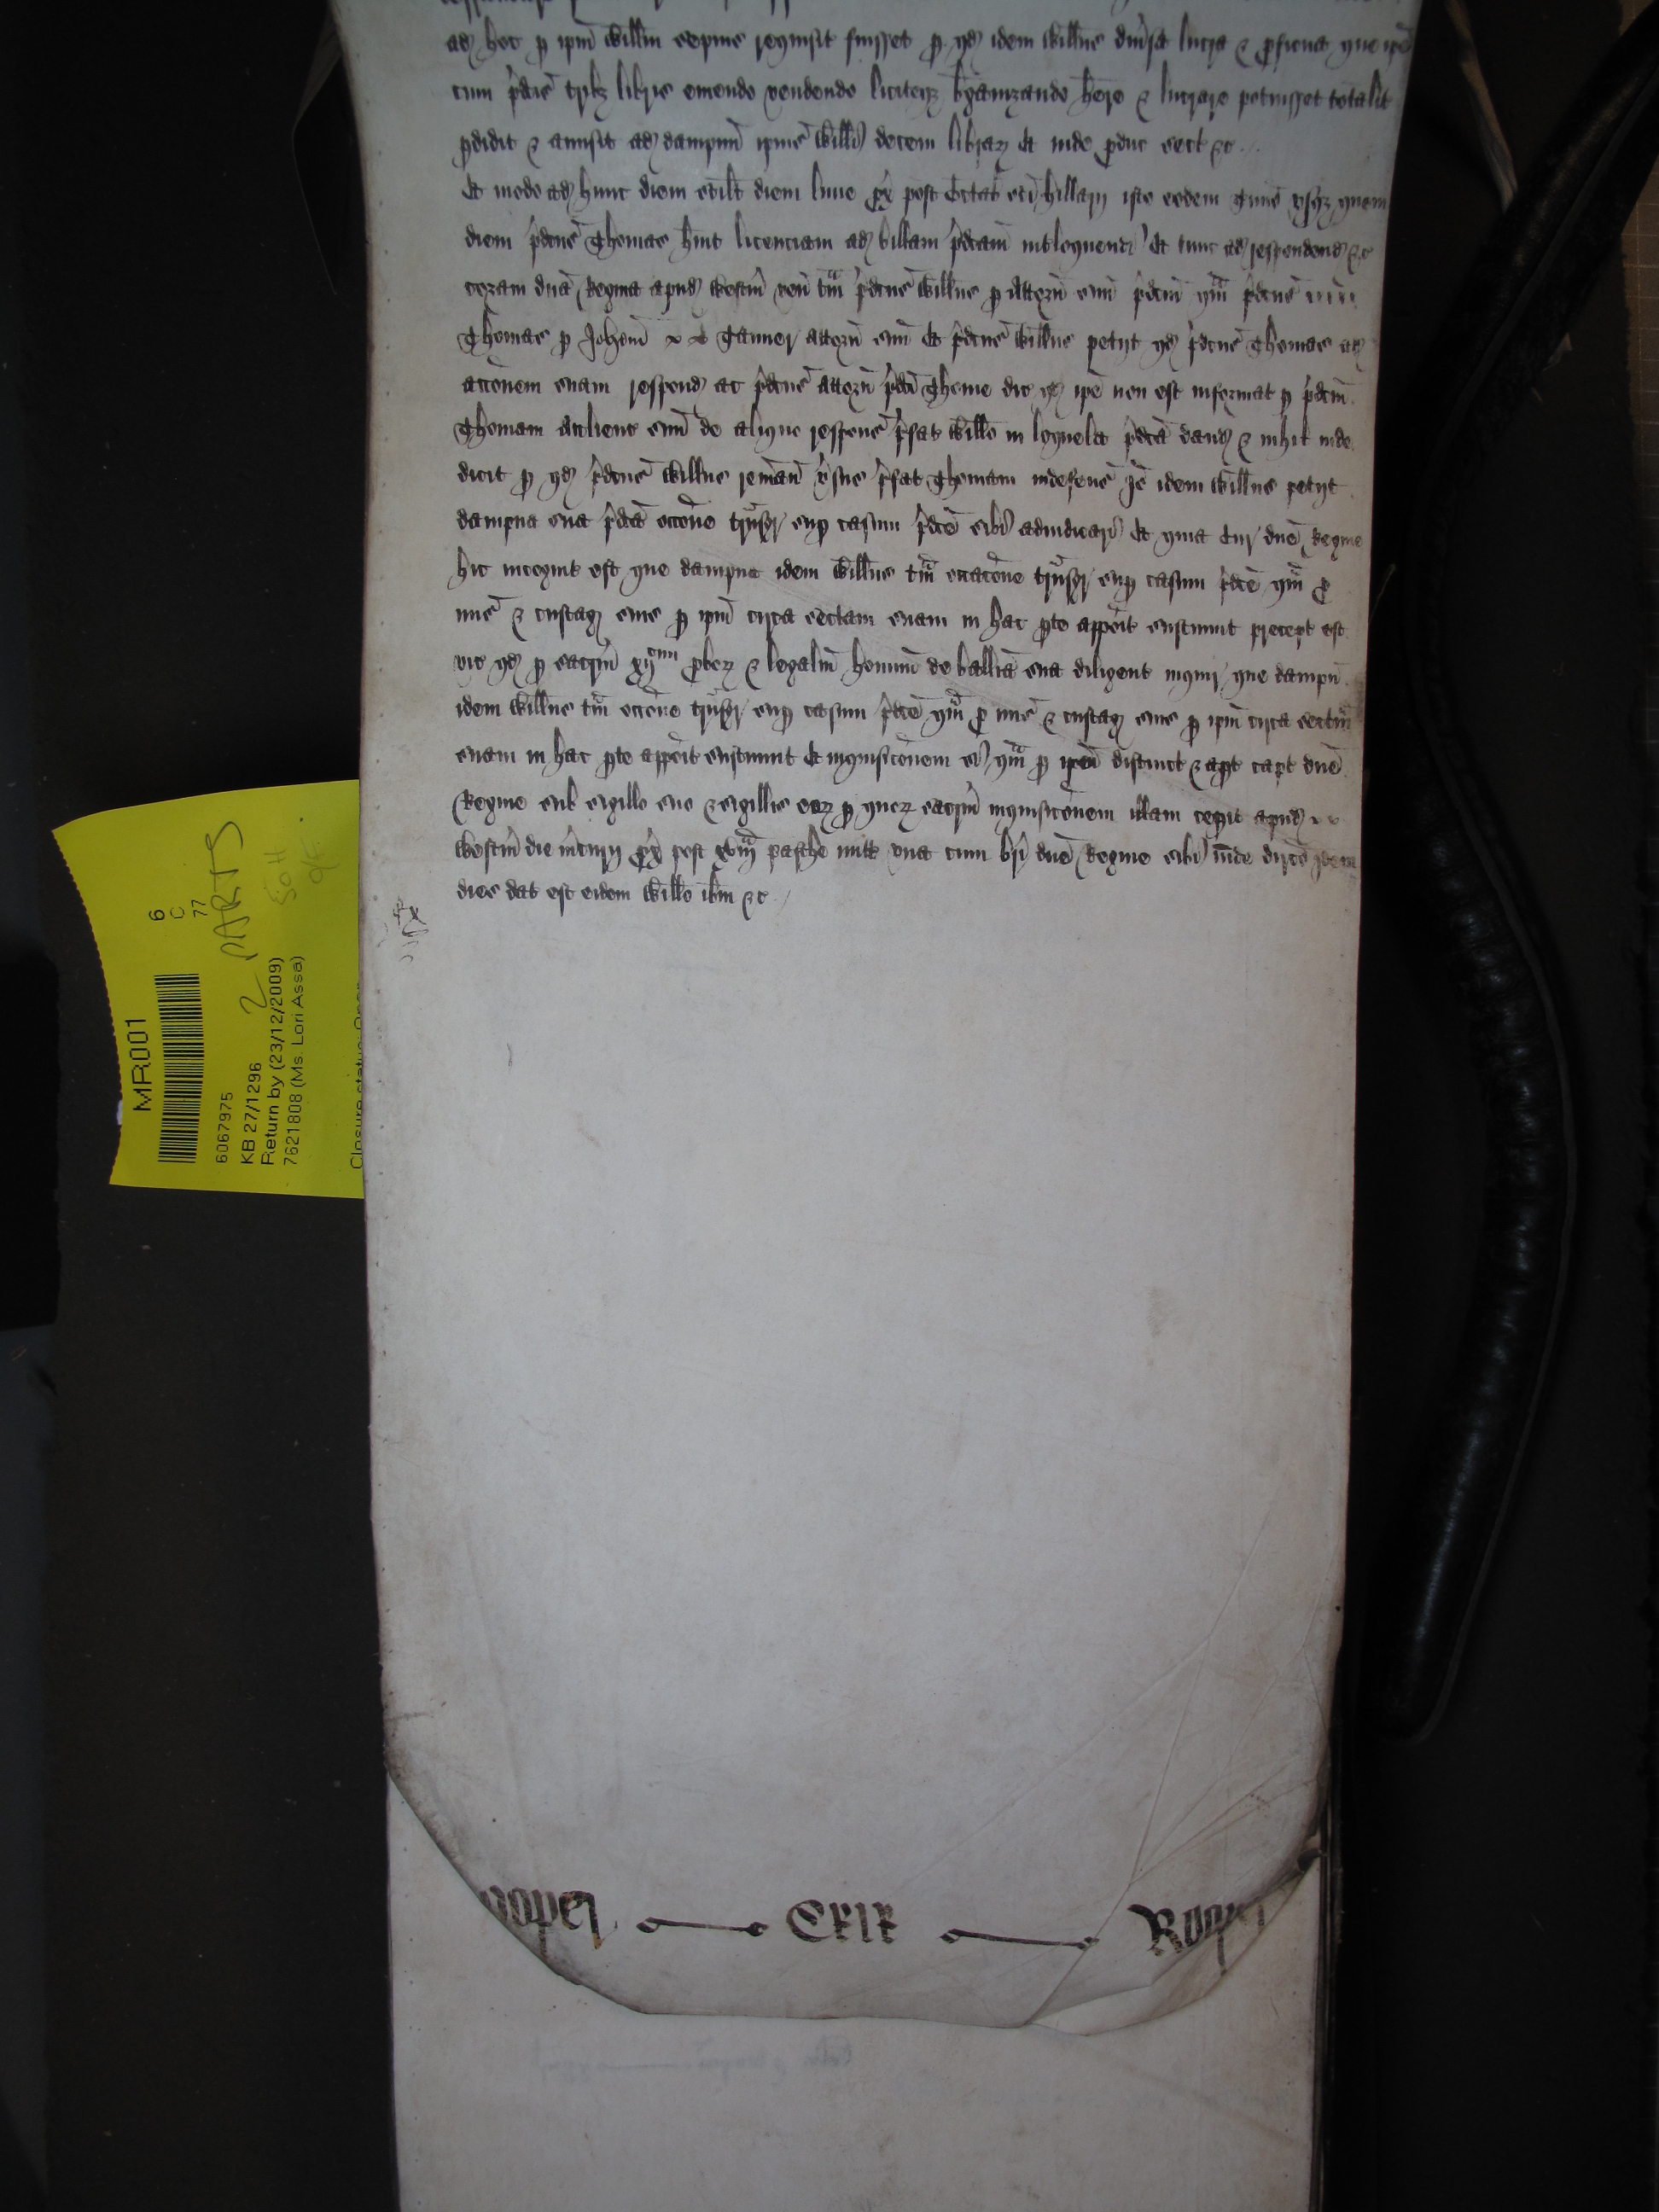 ad hoc p ipm Willm sepius requisit fuisset p qd idem Willus divsa lucra & pficua que ipe
cum pdcis tribz libris emendo vendendo liciteqz bargainzando here & lucrare potuisset totalit
pdidit & amisit ad dampnu ipius Willi decem librarz Et inde pduc sect &c
Et modo ad hunc diem scilt diem lune px post Octab sci hillarij isto eodem Tmio usqz quem
diem pdcus Thomas huit licenciam ad billam pdcam intloquend Et tunc ad respondend &c
coram dna Regina apud Westm ven tam pdcus Willus p Attorn suu pdcm qm pdcus
Thomas p Johem Tanner attorn suu Et pdcus Willus petijt qd pdcus Thomas ad
accoem suam respond ac pdcus Attorn pdci Thome dic qd ipe non est informat p pdcm
Thomam de aliquo respons pfat Willo in loquela pdca dand & nihil inde
dicit p qd pdcus Willus reman vsus pfat Thomam indefens Io idem Willus petijt
dampna sua pdca occone trnsgr sup casum pdce sibi adiudicari Et quia Cur dne Regine
hic incognit est que dampna idem Willus tam occacone trnsgr sup casum pdce qm p
mis & custag suis p ipm circa sectam suam in hac pte appoit sustinuit precept est
vic qd p sacrm xij pborz & legaliu hominu de balliua sua diligent inquir que dampn
idem Willus tam occone trnsgr sup casum pdce qm p mis & custag suis p ipm circa sectm
suam in hac pte appoit sustinuit Et inquisiconem p ipm distinct & apt capt dne
Regine sub sigillo suo & sigillis eorz p quorz sacrm inquisiconem illam cepit apud
Westm die mcurij px post pasche mitt una cum bri dne Regine sibi inde dirco Idem
dies dat est eidem Willo ibm &c
MR001
6
C
77
6067975
KB 27/1296
Return by (23/12/2009)
7621808 (Ms. Lori Assa)
2 PARTS
Roper